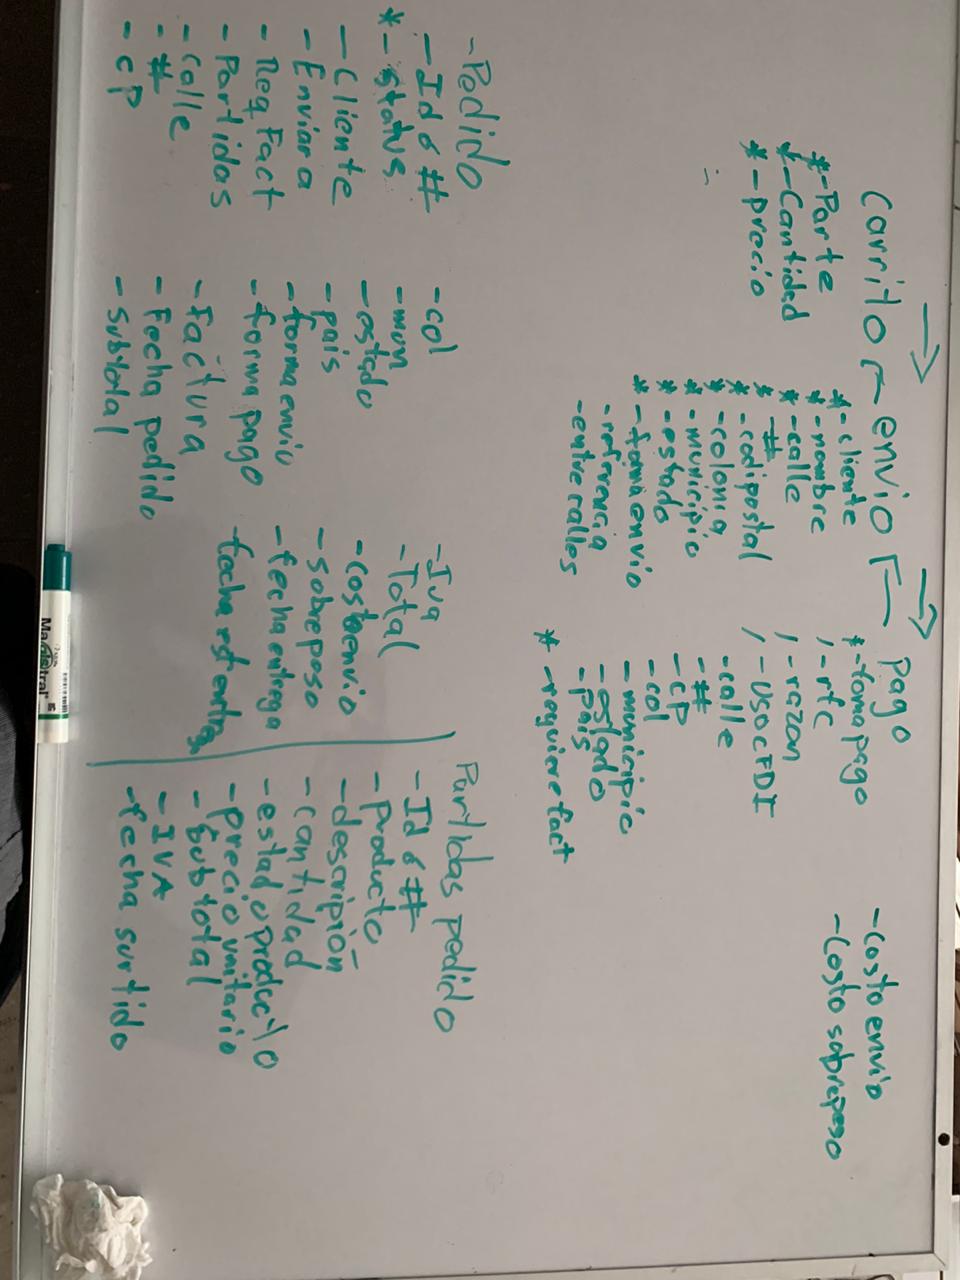 carrito → envio → Pago
*-Parte
*-Cantidad
*-precio
*-cliente
*-nombre
*-calle
*-#
*-codipostal
*-colonia
*-municipio
*-estado
*-forma envio
-referencia
-entre calles
*-formapago
/-rfc
/-razon
/-usoCFDI
-calle
-#
-CP
-col
-municipio
-estado
-pais
*-requiere fact
-costo envio
-costo sobrepeso
-Pedido
-Id ó #
*-status
-Cliente
-Enviar a
-Req Fact
-Partidas
-calle
-#
-CP
-col
-mun
-estado
-pais
-forma envio
-forma pago
-Factura
-Fecha pedido
-subtotal
-Iva
-Total
-costo envio
-sobrepeso
-fecha entrega
Partidas pedido
-Id ó #
-producto
-descripción
-cantidad
-estado producto
-precio unitario
-subtotal
-IVA
-fecha surtido